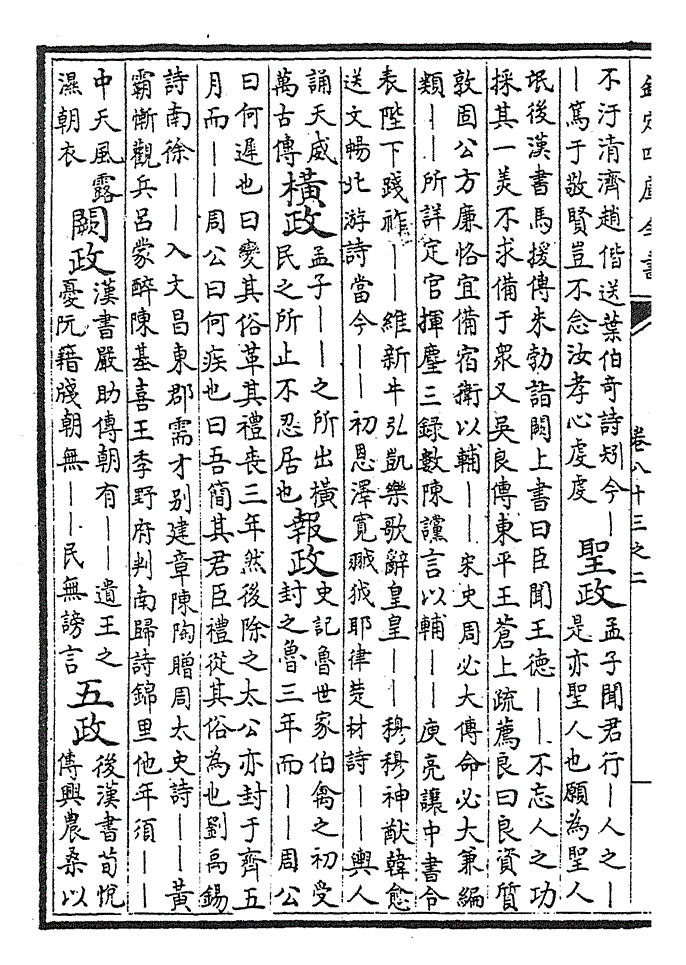 欽定四庫全書
卷八十三之二
不汙清濟趙偕送葉伯奇詩矧今｜
｜篤于敬賢豈不念汝孝心虔虔
聖政
孟子聞君行｜｜人之｜
是亦聖人也願為聖人
氓後漢書馬援傳朱勃詣闕上書曰臣聞王德｜｜不忘人之功
採其一美不求備于衆又吳良傳東平王蒼上疏薦良曰良資質
敦固公方廉恪宜備宿衛以輔｜｜宋史周必大傳命必大兼編
類｜｜所詳定官揮麈三録數陳讜言以輔｜｜庾亮讓中書令
表陛下踐祚｜｜維新牛弘凱樂歌辭皇皇｜｜穆穆神猷韓愈
送文暢北游詩當今｜｜初恩澤寛狘耶律楚材詩｜｜輿人
誦天威
萬古傳
橫政
孟子｜｜之所出橫
民之所止不忍居也
報政
史記魯世家伯禽之初受
封之魯三年而｜｜周公
曰何遲也曰變其俗革其禮喪三年然後除之太公亦封于齊五
月而｜｜周公曰何疾也曰吾簡其君臣禮從其俗為也劉禹錫
詩南徐｜｜入文昌東郡需才别建章陳陶贈周太史詩｜｜黄
霸慚觀兵呂蒙醉陳基喜王季野府判南歸詩錦里他年須｜｜
中天風露
濕朝衣
闕政
漢書嚴助傳朝有｜｜遺王之
憂阮籍牋朝無｜｜民無謗言
五政
後漢書荀悅
傳興農桑以